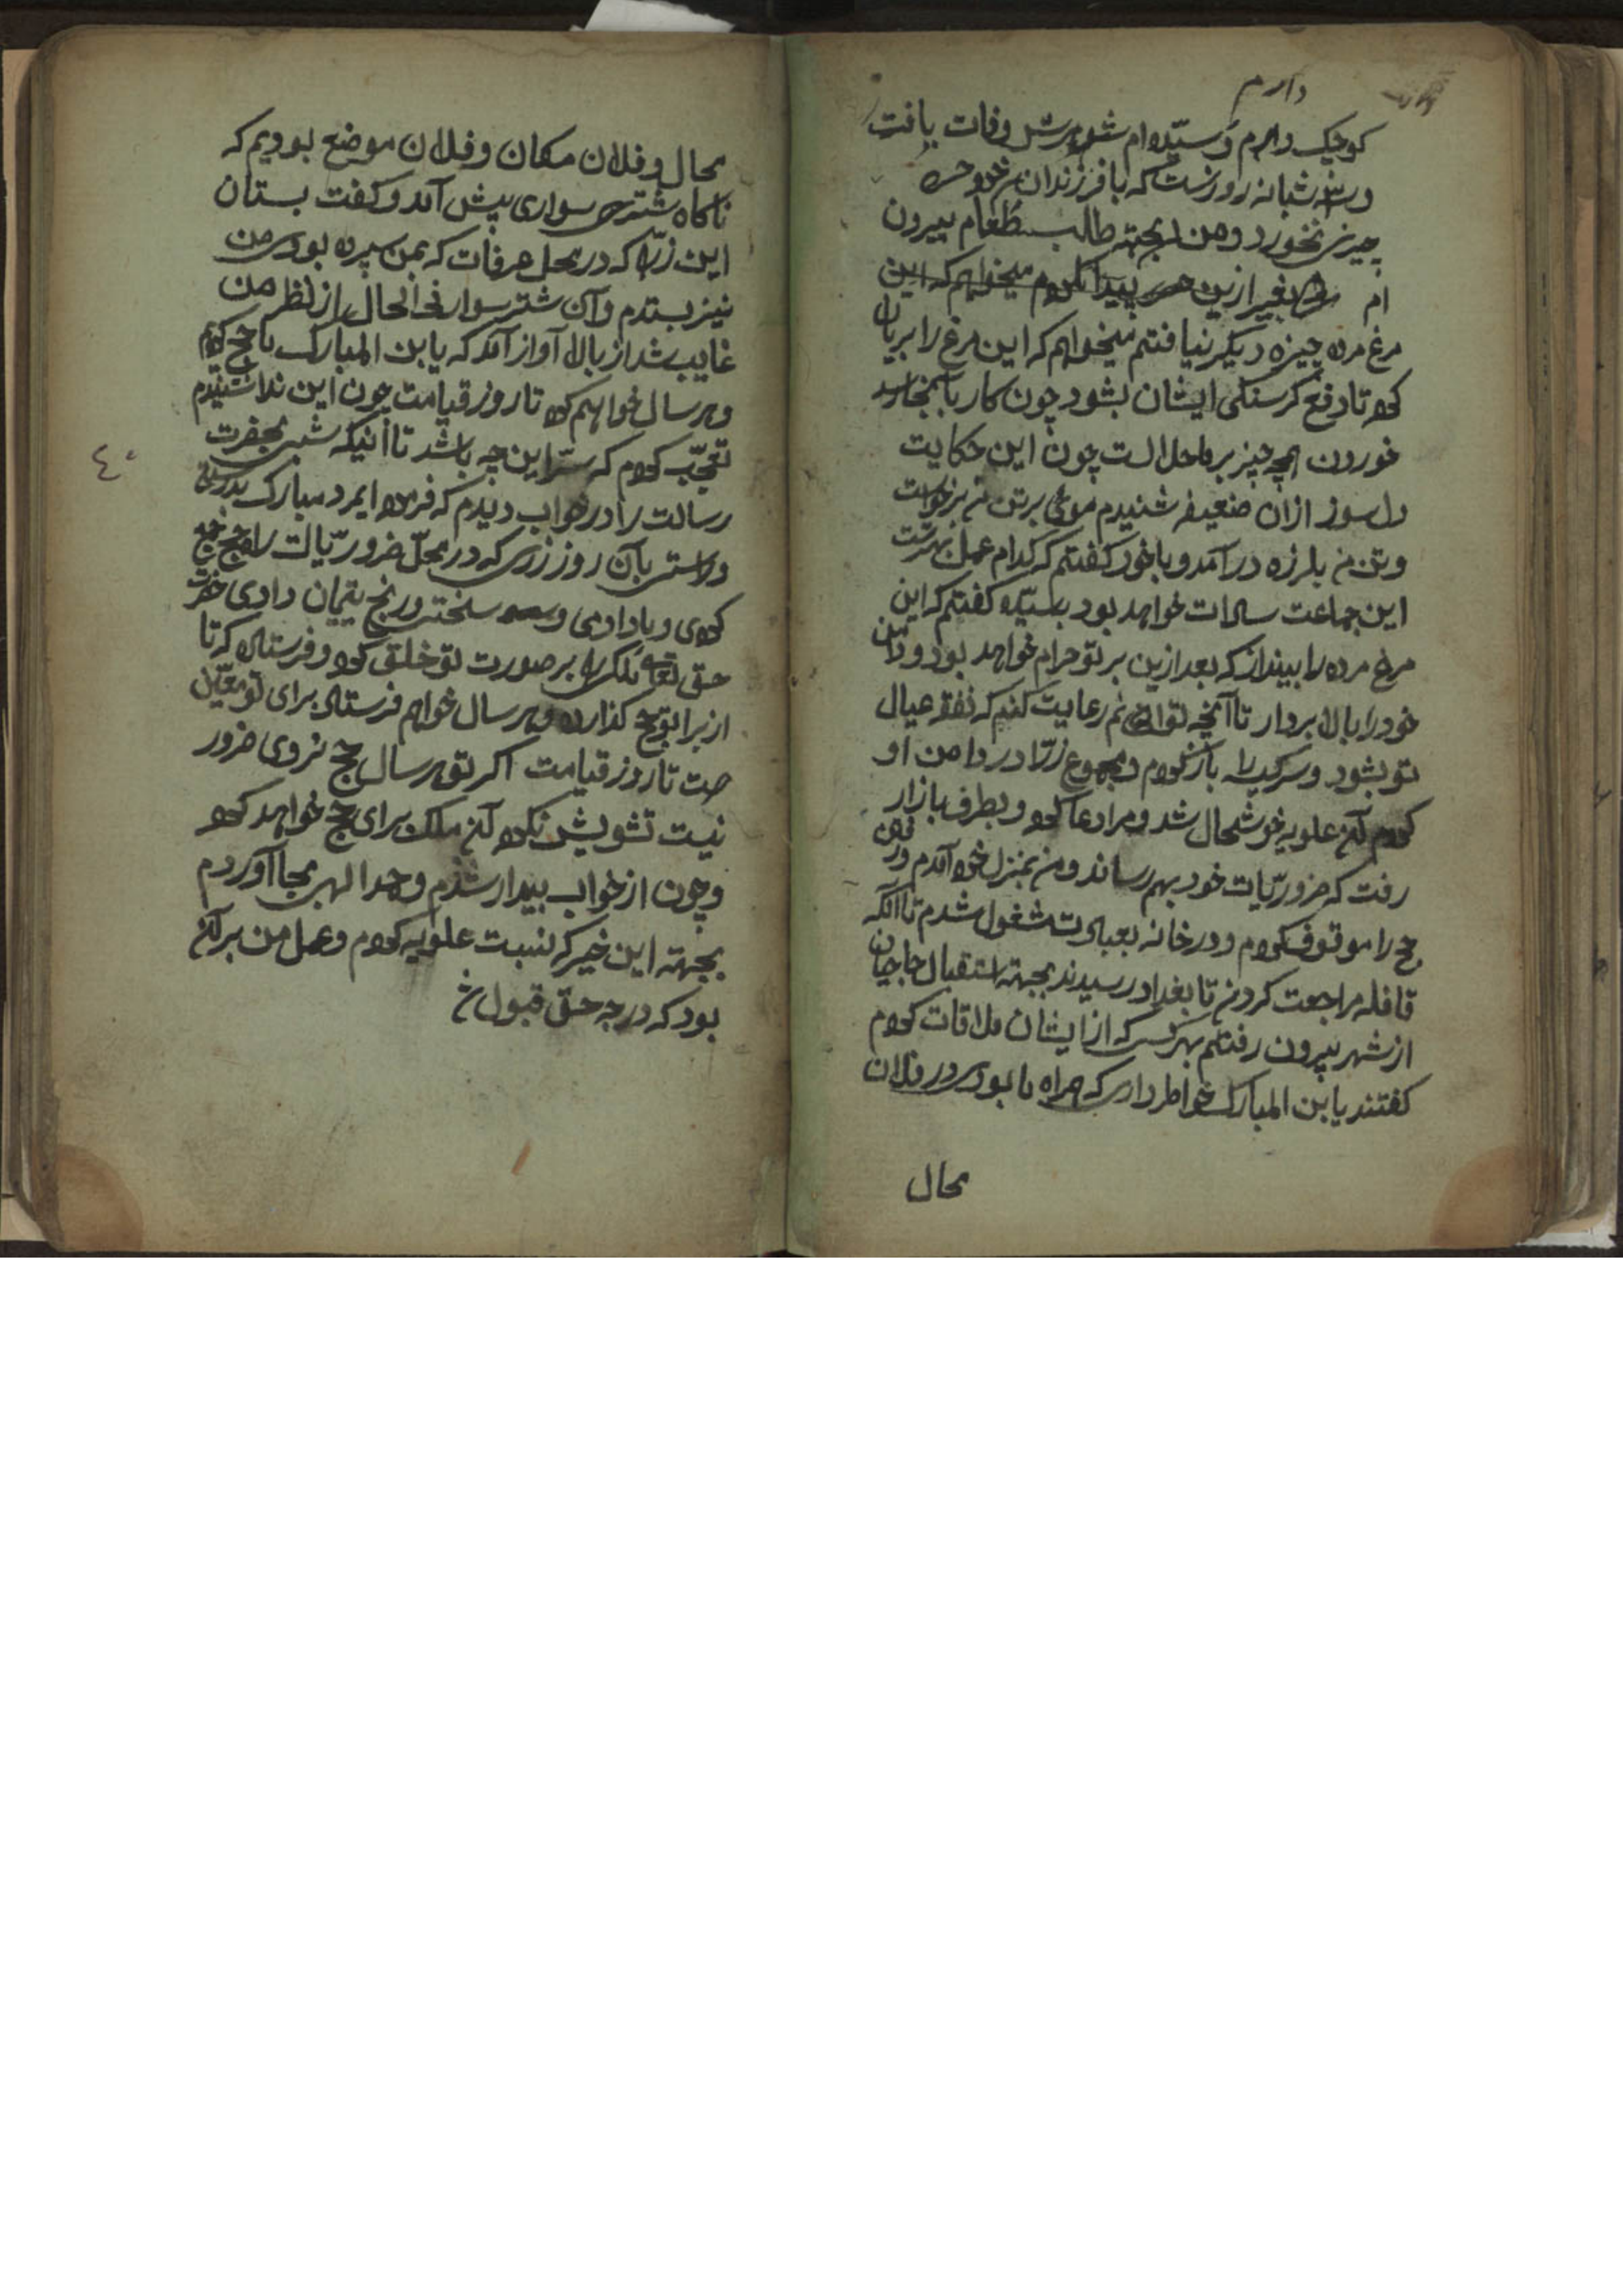 دارم
کوچک دارم و سیّده ام شوهرش وفات یافت
و سه شبانه روزست که با فرزندان
چیزی نخورد و من بجهته طالب طعام بیرون
ام بغیر ازین پیدا نکردم میخواهم که این
مرغ مرده چیزه دیگر نیافتم میخواهم که این مرغ را بریان
کرده تا دفع کرسنکی ایشان بشود چون کار باینجا رسد
خوردن همچه چیز بر ما حلال است چون این حکایت
دل سوز ازان ضعیفه شنیدم موی بر تن من برخواست
و تن من بلرزه در آمد و با خود کفتم که کدام عمل بهتر است
این جماعت سادات خواهد بود بسیّده کفتم که این
مرغ مرده را بینداز که بعد ازین بر تو حرام خواهد بود و دامن
خود را بالا بردار تا آنچه توانم رعایت کنم که نفقه عیال
تو بشود و سر کیسه را باز کردم و مجموع زر را در دامن او
کردم آن علویه خوشحال شد و مرا دعا کرده و بطرف بازار
رفت که ضروریّات خود بهم رساند و من بمنزل خود آمدم و
حج را موقوف کردم و در خانه بعبادت مشغول شدم تا آنکه
قافله مراجعت کردند تا بغداد رسیدند بجهته استقبال حاجیان
از شهر بیرون رفتم بهر کس که از ایشان ملاقات کردم
کفتند یا بن المبارک خواطر داری که همراه ما بودی در فلان
محال
محال و فلان مکان و فلان موضع بودیم که
ناکاه شتر سواری پیش آمد و کفت بستان
این زر را که در محل عرفات که بمن سپرده بودی من
نیز بستدم و آن شتر سوار فی الحال از نظر من
غایب شد از بالا آواز آمد که یا بن المبارک ما حج کردیم
و هر سال خواهیم کرد تا روز قیامت چون این ندا شنیدم
تعجّب کردم که سرّ این چه باشد تا آنکه شبی بحضرت
رسالت را در خواب دیدم که فرمود ای مرد مبارک بدرستی
و راستی بآن روز زری که در محلّ ضرور
کردی و یا دادی و سختی و رنج یتیمان دادی حضرت
حق تعالی ملکی را بر صورت تو خلق کرده و فرستاد که تا
از برا تو حج کذارد و هر سال خواهم فرستاد برای تو معیّن
است تا روز قیامت اکر تو هر سال حج نروی ضرور
نیست تشویش نکرده آن ملک برای حج خواهد کرد
و چون از خواب بیدار شدم و حمد الهی بجا آوردم
بجهته این خیر که نسبت علویه کردم و عمل من بر آن
بود که درجه حق قبول
٤٠